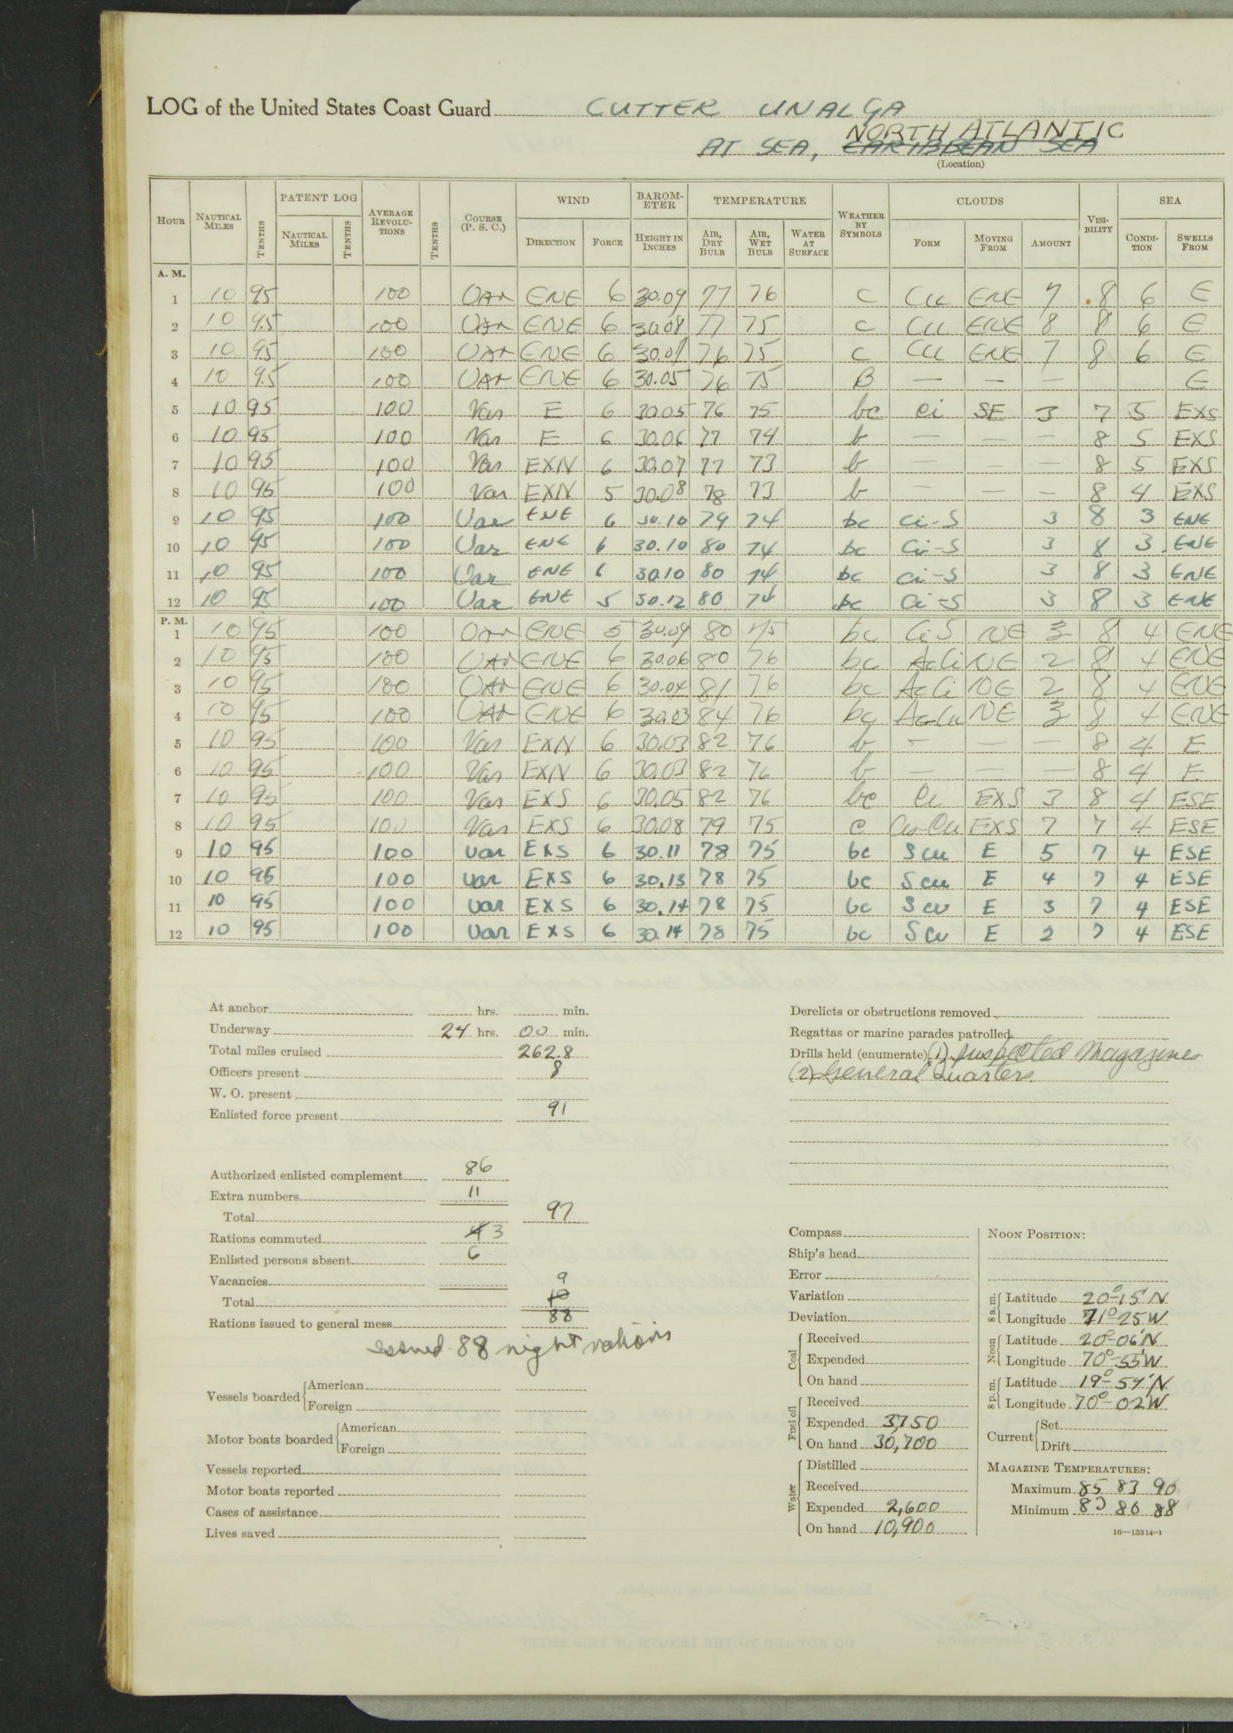 LOG of the United States Coast Guard CUTTER UNALGA
NORTH ATLANTIC
AT SEA, CARIBBEAN SEA
(Location)
HOUR NAUTICAL MILES TENTHS PATENT LOG NAUTICAL MILES TENTHS AVERAGE REVOLUTIONS TENTHS COURSE (P. S. C.) WIND DIRECTION FORCE BAROMETER HEIGHT IN INCHES TEMPERATURE AIR, DRY BULB AIR, WET BULB WATER AT SURFACE WEATHER BY SYMBOLS CLOUDS FORM MOVING FROM AMOUNT VISIBILITY SEA CONDITION SWELLS FROM
A. M.
1 10 95 100 Var ENE 6 30.09 77 76 c Cu ENE 7 .8 6 E
2 10 95 100 Var ENE 6 30.08 77 75 c Cu ENE 8 8 6 E
3 10 95 100 Var ENE 6 76 75 c Cu ENE 7 8 6 E
4 10 95 100 Var ENE 6 30.05 76 75 B — — — E
5 10 95 100 Var E 6 30.05 76 75 bc Ci SE 3 7 5 EXS
6 10 95 100 Var E 6 30.06 77 74 b — — — 8 5 EXS
7 10 95 100 Var EXN 6 30.07 77 73 b — — — 8 5 EXS
8 10 95 100 Var EXN 5 30.08 78 73 b — — — 8 4 EXS
9 10 95 100 Var ENE 6 30.10 79 74 bc Ci-S 3 8 3 ENE
10 10 95 100 Var ENE 6 30.10 80 74 bc Ci-S 3 8 3 ENE
11 10 95 100 Var ENE 6 30.10 80 74 bc Ci-S 3 8 3 ENE
12 10 95 100 Var ENE 5 30.12 80 74 bc Ci-S 3 8 3 ENE
P. M.
1 10 95 100 Var ENE 5 30.09 80 75 bc CiS NE 3 8 4 ENE
2 10 95 100 Var ENE 6 30.06 80 76 bc AcCi NE 2 8 4 ENE
3 10 95 100 Var ENE 6 30.04 81 76 bc AcCi NE 2 8 4 ENE
4 10 95 100 Var ENE 6 30.03 84 76 bc NE 3 8 4 ENE
5 10 95 100 Var EXN 6 30.03 82 76 b — — — 8 4 E
6 10 95 100 Var EXN 6 30.03 82 76 b — — — 8 4 E
7 10 95 100 Var EXS 6 30.05 82 76 bc Cu EXS 3 8 4 ESE
8 10 95 100 Var EXS 6 30.08 79 75 c EXS 7 7 4 ESE
9 10 95 100 Var EXS 6 30.11 78 75 bc Scu E 5 7 4 ESE
10 10 95 100 Var EXS 6 30.13 78 75 bc Scu E 4 7 4 ESE
11 10 95 100 Var EXS 6 30.14 78 75 bc Scu E 3 7 4 ESE
12 10 95 100 Var EXS 6 30.14 78 75 bc Scu E 2 7 4 ESE
At anchor hrs. min.
Underway 24 hrs. 00 min.
Total miles cruised 262.8
Officers present 8
W. O. present
Enlisted force present 91
Authorized enlisted complement 86
Extra numbers 11
Total 97
Rations commuted 3
Enlisted persons absent 6
Vacancies 9
Total 10
Rations issued to general mess 88
issued 88 night rations
Vessels boarded American
Foreign
Motor boats boarded American
Foreign
Vessels reported
Motor boats reported
Cases of assistance
Lives saved
Derelicts or obstructions removed
Regattas or marine parades patrolled
Drills held (enumerate) (1) Inspected Magazines
(2) General Quarters
Compass
Ship's head
Error
Variation
Deviation
Coal Received
Expended
On hand
Fuel oil Received
Expended 3750
On hand 30,700
Water Distilled
Received
Expended 2,600
On hand 10,900
NOON POSITION:
8 a.m. Latitude 20°-15'N
Longitude 71°-25'W
Noon Latitude 20°-06'N
Longitude 70°-55'W
8 p.m. Latitude 19°-57'N
Longitude 70°-02'W
Current Set
Drift
MAGAZINE TEMPERATURES:
Maximum 85 83 90
Minimum 83 80 88
16—13314-1